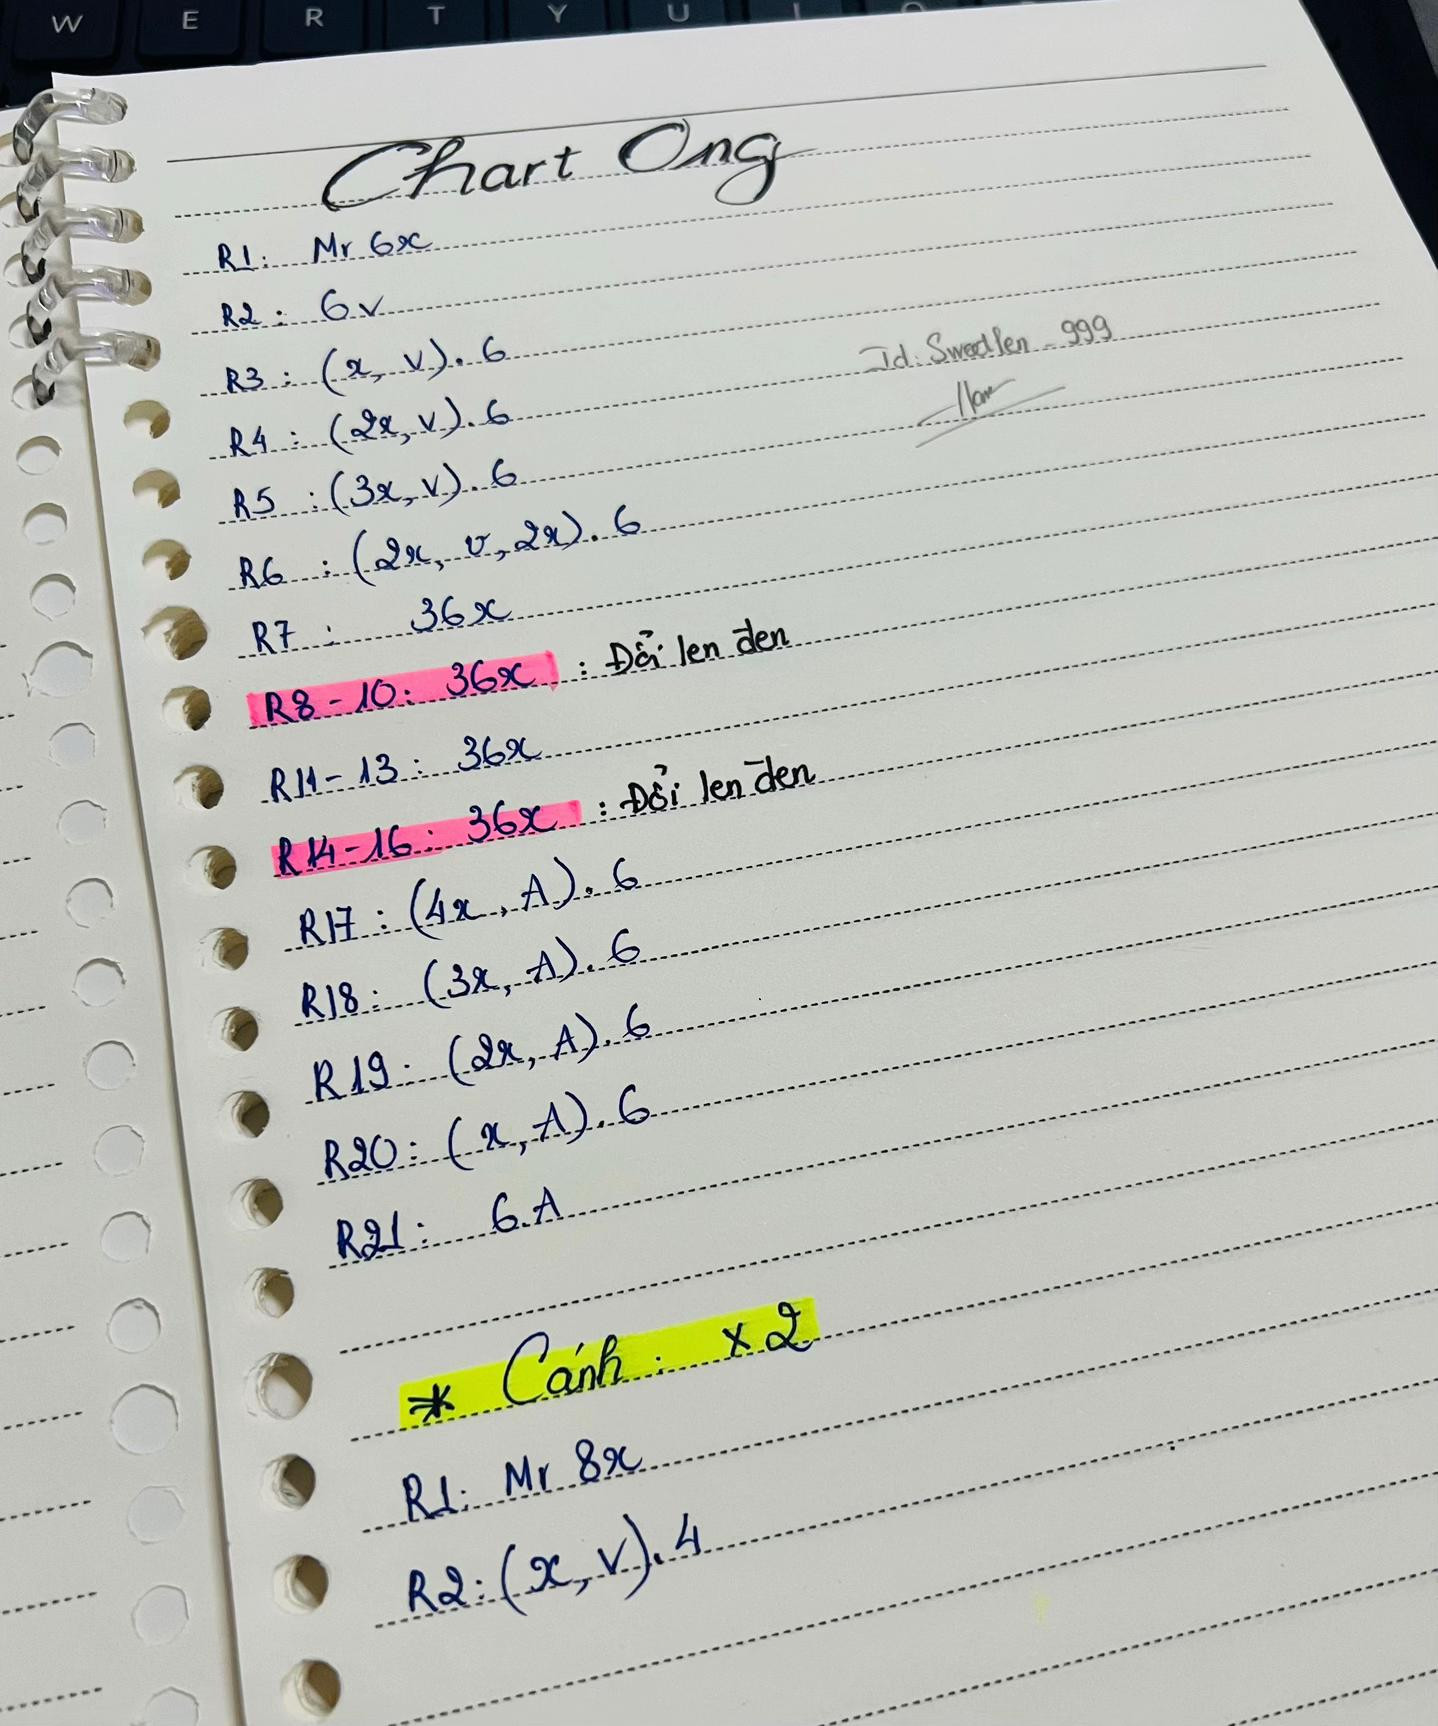 W E R T Y U
Chart Ong
R1: Mr 6x
R2: 6v
R3: (x, v). 6
Id: Sweetlen_999
R4: (2x, v). 6
R5: (3x, v). 6
R6: (2x, v, 2x). 6
R7: 36x
R8-10: 36x : Đổi len đen
R11-13: 36x
R14-16: 36x : Đổi len đen
R17: (4x, A). 6
R18: (3x, A). 6
R19: (2x, A). 6
R20: (x, A). 6
R21: 6.A
* Cánh: x2
R1: Mr 8x
R2: (x, v). 4